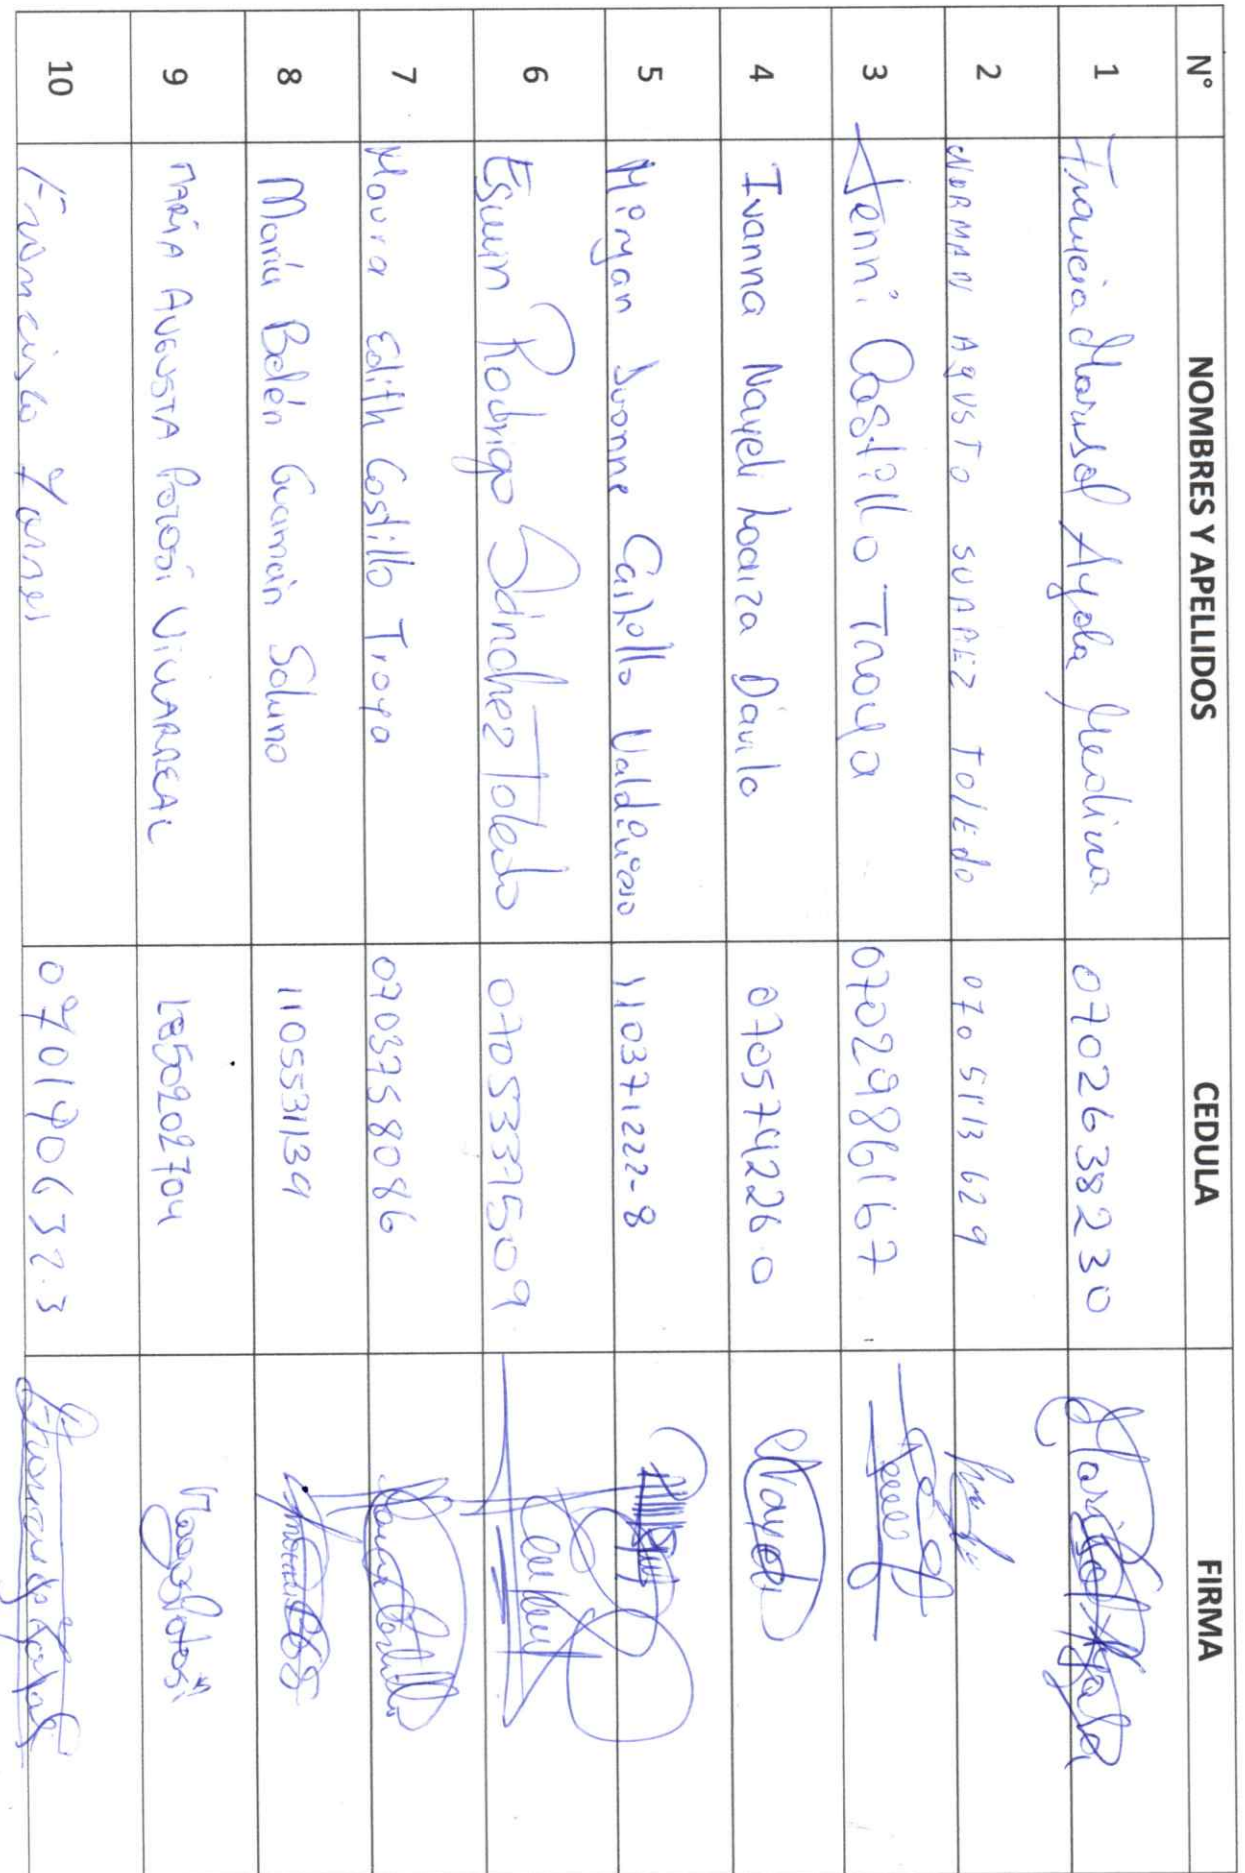 N° NOMBRES Y APELLIDOS CEDULA FIRMA
1 Francia Marisol Ayala Medina 0702638230 Marisol Ayala
2 NORMAN AGUSTO SUAREZ TOLEDO 0705113629
3 Jenni Castillo Troya 0702986167
4 Ivanna Nayeli Loaiza Dávila 070574226-0 Nayeli
5 Miryan Ivonne Carpollo Valdivieso 110371222-8
6 Eswin Rodrigo Sánchez Toledo 0705337509
7 Maura Edith Castillo Troya 0703758086 Maura Castillo
8 María Belén Guamán Solano 1105531139
9 MARÍA AUGUSTA POTOSÍ VILLARREAL 1850202704 Potosí
10 Francisco 070190632.3